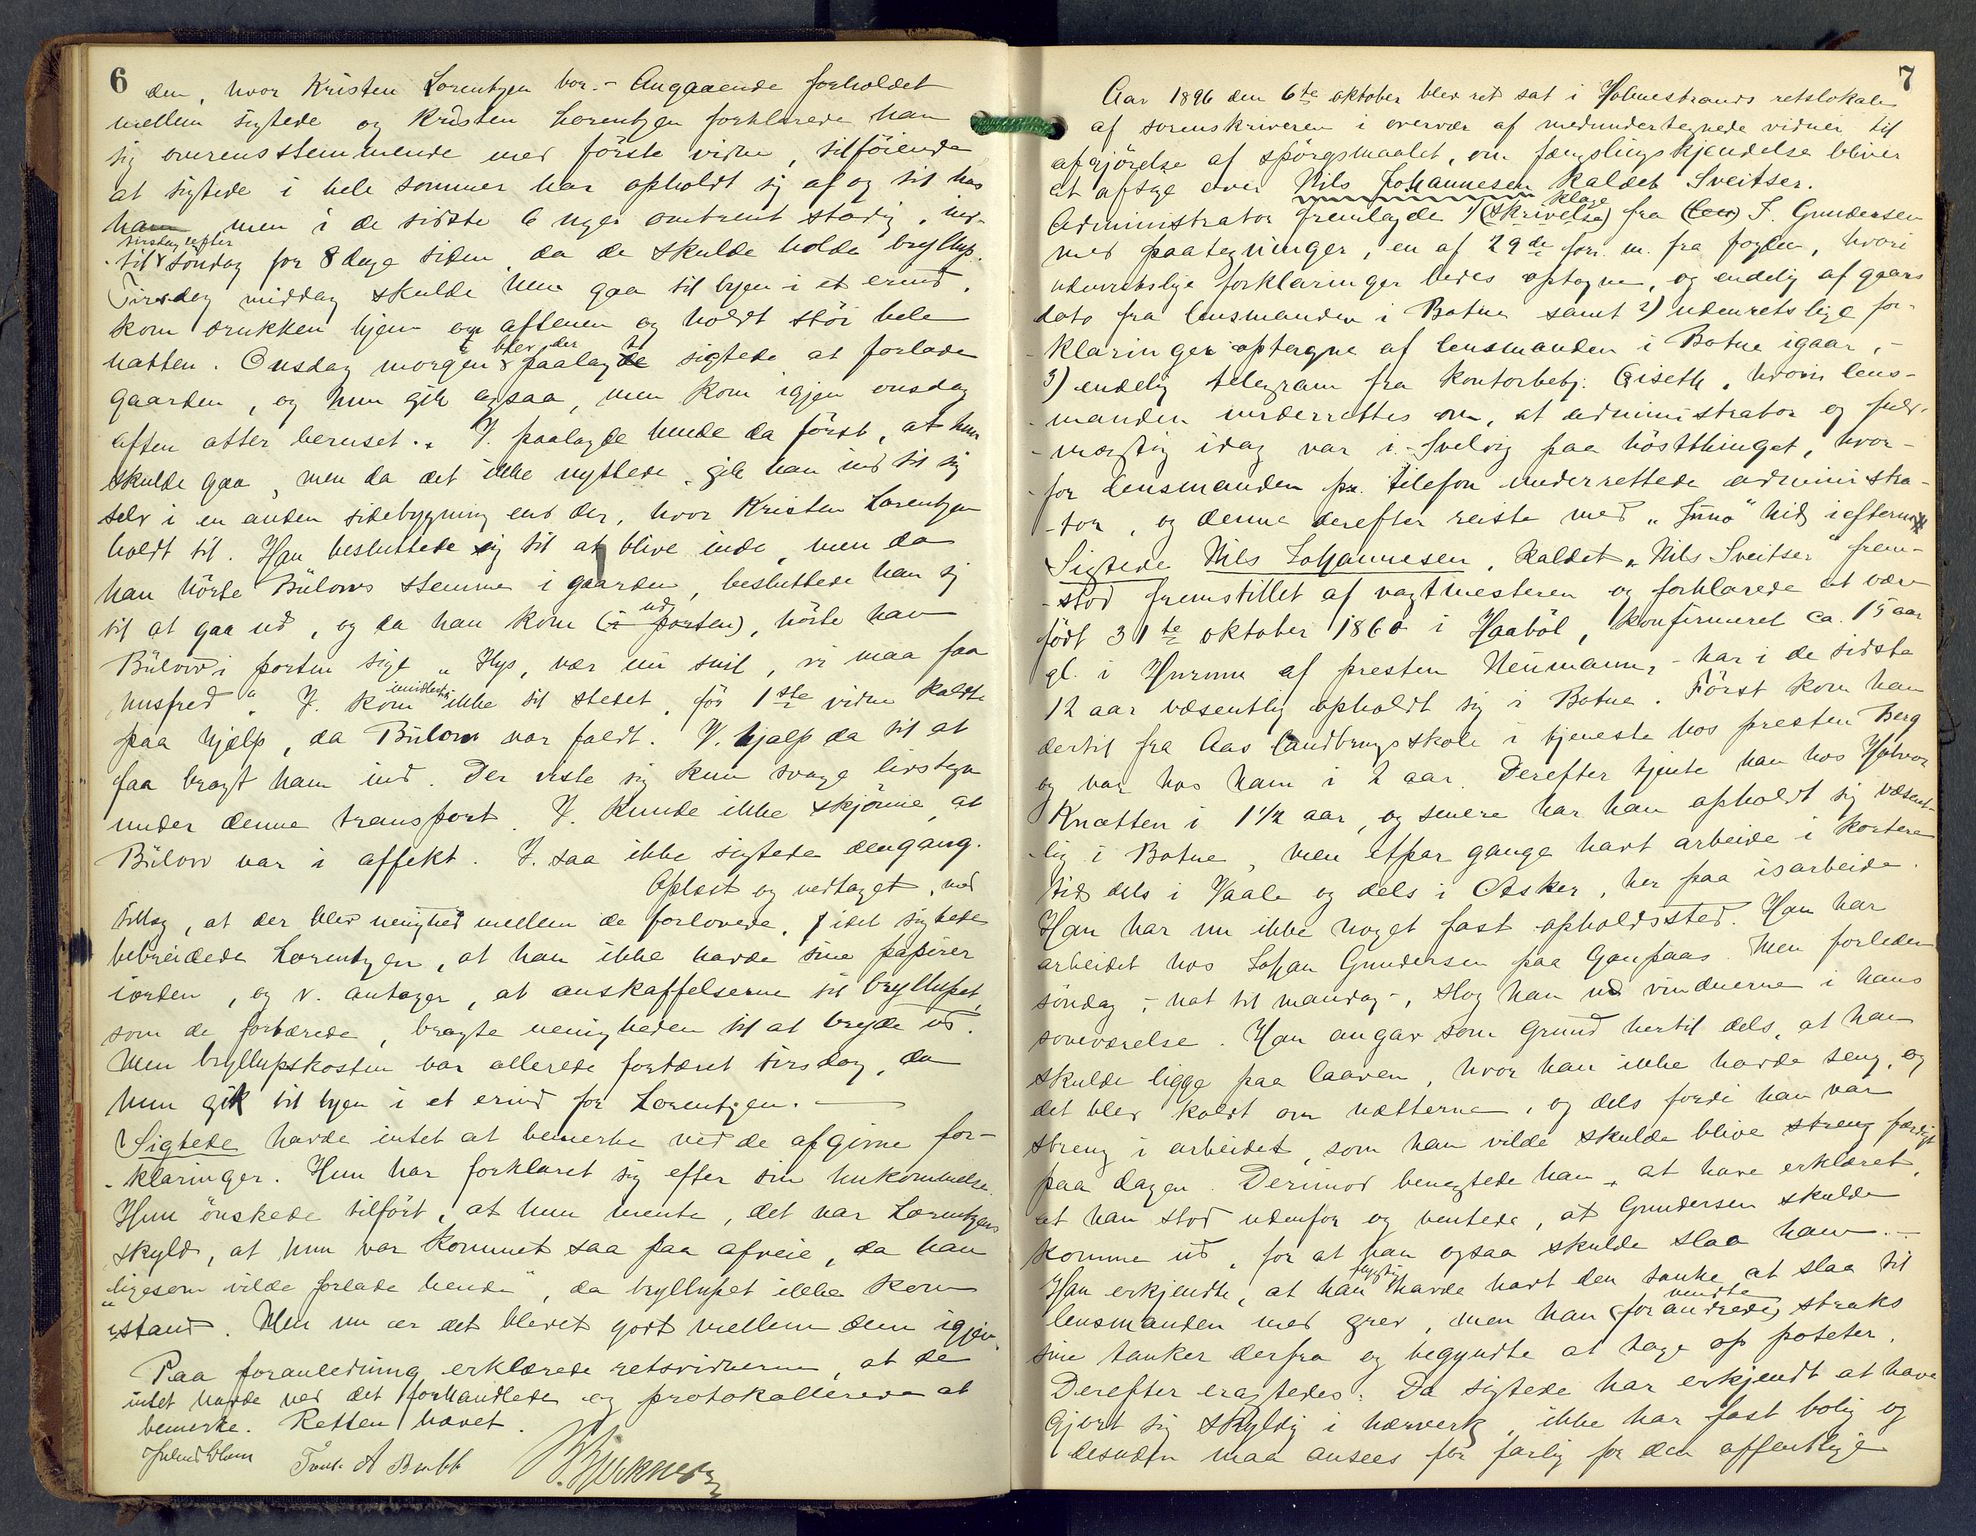 6
den, hvor Kristen Lorentzen bor. – Angaaende forholdet
mellem sigtede og Kristen Lorentzen forklarede han
sig overensstemmende med förste vidne, tilföiende
at sigtede i hele sommer har opholdt sig af og til hos
ham men i de sidste 6 uger omtrent stadig, ind-
tirsdag efter
til söndag for 8 dage siden, da de skulde holde bryllup.
Tirsdag middag skulde hun gaa til byen i et erind,
kom drukken hjem og aftenen og holdt stöi hele
blev der
natten. Onsdag morgen paalagde sigtede at forlade
gaarden, og hun gik ogsaa, men kom igjen onsdag
aften atter beruset. V. paalagde hende da först, at hun
skulde gaa, men da det ikke nyttede, gik han ind til sig
selv i en anden sidebygning end der, hvor Kristen Lorentzen
holdt til. Han besluttede sig til at blive inde, men da
han hörte Bülows stemme i gaarden, besluttede han sig
ud
til at gaa ud, og da han kom (i porten), hörte han
Bülow i porten sige „Hys, vær nu snil, vi maa faa
imidlertid
husfred". V. kom ikke til stedet, för 1ste vidne kaldte
paa hjælp, da Bülow var faldt. V. hjalp da til at
faa bragt ham ind. Der viste sig kun svage livstegn
under denne transport. V. kunde ikke skjönne, at
Bülow var i affekt. V. saa ikke sigtede dengang.
Oplæst og vedtaget, med
tillæg, at der blev uenighed mellem de forlovede, idet sigtede
bebreidede Lorentzen, at han ikke havde sine papirer
iorden, og v. antager, at anskaffelserne til bryllupet,
som de fortærede, bragte uenigheden til at bryde ud.
Men bryllupskosten var allerede fortæret tirsdag, da
hun gik til byen i et erind for Lorentzen.
Sigtede havde intet at bemerke ved de afgivne for-
klaringer. Hun har forklaret sig efter sin hukommelse.
Hun önskede tilfört, at hun mente, det var Lorentzens
skyld, at hun var kommet saa paa afveie, da han
„ligesom vilde forlade hende", da bryllupet ikke kom
istand. Men nu er det blevet godt mellem dem igjen.
Paa foranledning erklærede retsvidnerne, at de
intet havde ved det forhandlede og protokollerede at
bemerke. Retten hævet.
7
Aar 1896 den 6te oktober blev ret sat i Holmestrands retslokale
af sorenskriveren i overvær af medundertegnede vidner til
afgjörelse af spörgsmaalet, om fængslingskjendelse bliver
at afsige over Nils Johannesen kaldet Sveitser.
klage
Administrator fremlagde 1) (skrivelse) fra J. Gundersen
med paategninger, en af 29de for. m. fra fogden, hvori
udenretslige forklaringer bedes optagne, og endelig af gaars
dato fra lensmanden i Botne samt 2) udenretslige for-
klaringer optagne af lensmanden i Botne igaar, –
3) endelig telegram fra kontorbetj. Giseth, hvori lens-
manden underrettes om, at administrator og fuld-
mægtig idag var i Svelvig paa höstthinget, hvor-
for lensmanden pr. telefon underrettede administra-
tor, og denne derefter reiste med „Juno" hid ieftermd.
Sigtede Nils Johannesen, kaldet „Nils Sveitser" frem-
stod fremstillet af vagtmesteren og forklarede at være
födt 31te oktober 1860 i Haaböl, konfirmeret ca. 15 aar
gl. i Hurum af presten Neumann, – har i de sidste
12 aar væsentlig opholdt sig i Botne. Först kom han
dertil fra Aas landbrugsskole i tjeneste hos presten Berg
og var hos ham i 2 aar. Derefter tjente han hos Halvor
Knatten i 1½ aar, og senere har han opholdt sig væsent-
lig i Botne, men etpar gange havt arbeide i kortere
tid dels i Vaale og dels i Asker, her paa isarbeide.
Han har nu ikke noget fast opholdssted. Han har
arbeidet hos Johan Gundersen paa Ganpaas. Men forleden
söndag, – nat til mandag –, slog han ud vinduerne i hans
soveværelse. Han angav som grund hertil dels, at han
skulde ligge paa laaven, hvor han ikke havde seng, og
det blev koldt om nætterne, og dels fordi han var
streng i arbeidet, som han vilde skulde blive streng færdigt
paa dagen. Derimod benegtede han, at have erklæret,
at han stod udenfor og ventede, at Gundersen skulde
komme ud, for at han ogsaa skulde slaa ham. –
Han erkjendte, at han havde havt den tanke at slaa til
vendte
lensmanden med grev, men han (forandrede) straks
sine tanker derfra og begyndte at tage op poteter.
Derefter eragtedes: Da sigtede har erkjendt at have
gjort sig skyldig i hærverk, ikke har fast bolig og
desuden maa ansees for farlig for den offentlige